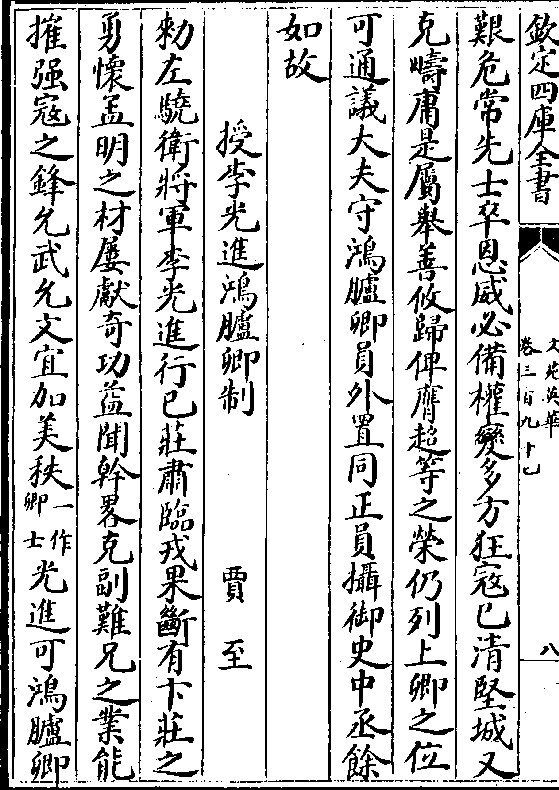 欽定四庫全書
文苑英華
卷三百九十七
八
艱危常先士卒恩威必備權變多方狂寇已清堅城又
克疇庸是屬舉善攸歸俾膺超等之榮仍列上卿之位
可通議大夫守鴻臚卿員外置同正員攝御史中丞餘
如故
授李光進鴻臚卿制 賈至
勑左驍衛將軍李光進行已莊肅臨戎果斷有卞莊之
勇懷孟明之材屢獻奇功益聞幹畧克副難兄之業能
摧强寇之鋒允武允文宜加美秩一作卿士光進可鴻臚卿